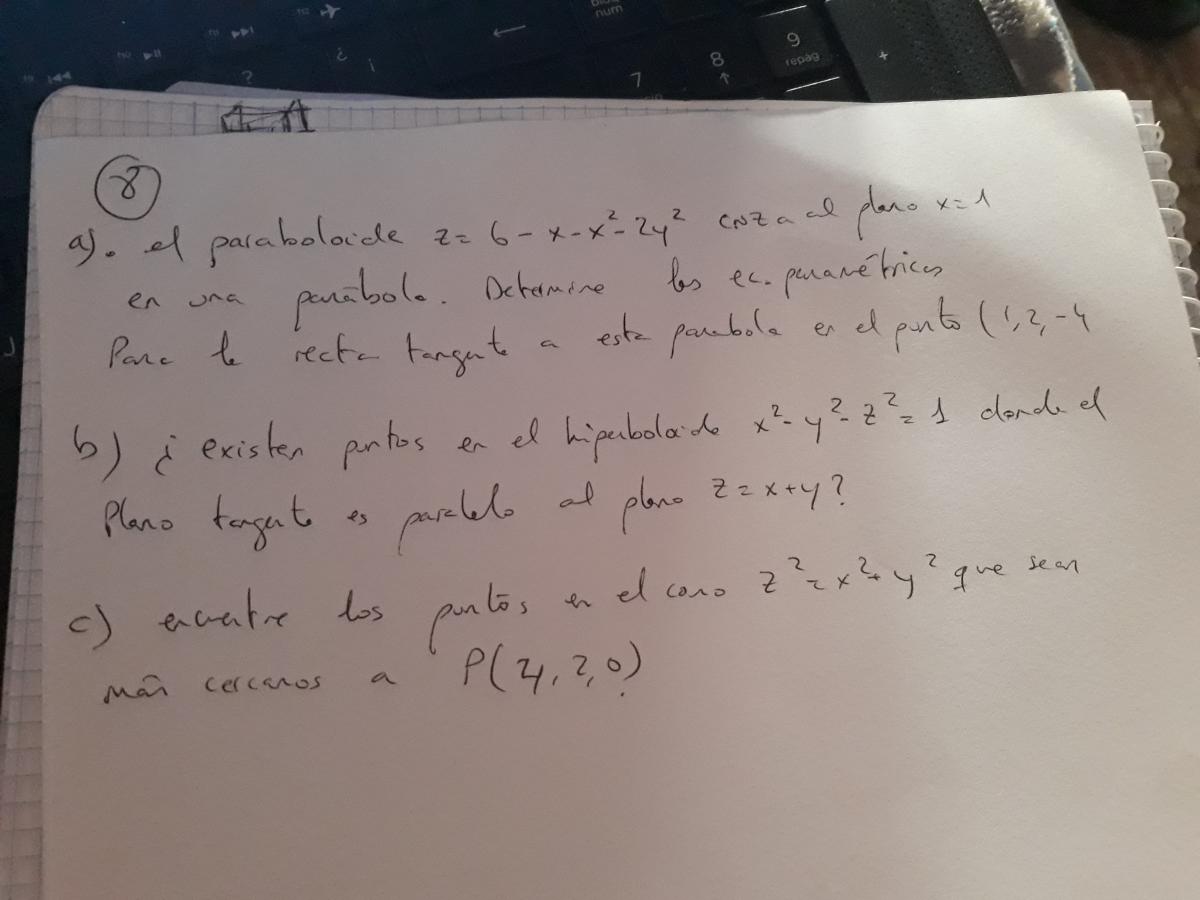 ←
num
9
repág
+
8
↑
7
¿
¡
?
8
a). el paraboloide z = 6 - x - x² - 2y² cruza al plano x = 1
en una parábola. Determine las ec. paramétricas
Para la recta tangente a esta parabola en el punto (1, 2, -4
b) ¿existen puntos en el hiperboloide x² - y² - z² = 1 donde el
Plano tangente es paralelo al plano z = x + y?
c) encuentre los puntos en el cono z² = x² + y² que sean
más cercanos a P(4, 2, 0)